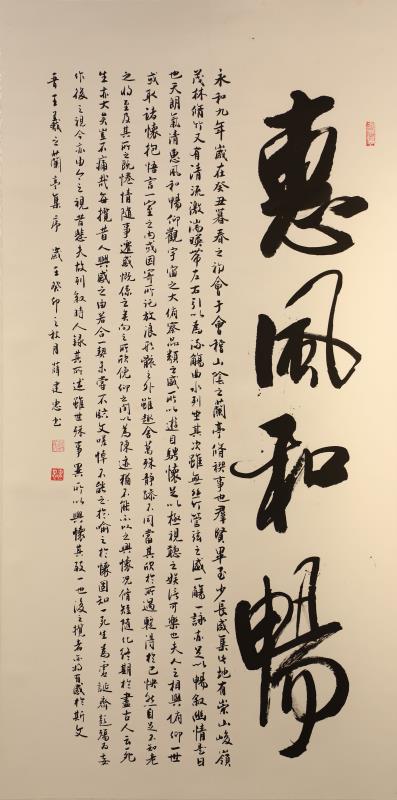 惠風和暢
永和九年歲在癸丑暮春之初會于會稽山陰之蘭亭脩禊事也羣賢畢至少長咸集此地有崇山峻嶺
茂林脩竹又有清流激湍暎帶左右引以為流觴曲水列坐其次雖無絲竹管弦之盛一觴一詠亦足以暢敘幽情是日
也天朗氣清惠風和暢仰觀宇宙之大俯察品類之盛所以遊目騁懷足以極視聽之娛信可樂也夫人之相與俯仰一世
或取諸懷抱悟言一室之內或因寄所託放浪形骸之外雖趣舍萬殊靜躁不同當其欣於所遇暫得於己怏然自足不知老
之將至及其所之既惓情隨事遷感慨係之矣向之所欣俛仰之間以為陳迹猶不能不以之興懷況脩短隨化終期於盡古人云死
生亦大矣豈不痛哉每攬昔人興感之由若合一契未嘗不臨文嗟悼不能喻之於懷固知一死生為虛誕齊彭殤為妄
作後之視今亦由今之視昔悲夫故列敘時人錄其所述雖世殊事異所以興懷其致一也後之攬者亦將有感於斯文
晉王羲之蘭亭集序 歲至癸卯之秋月薛建忠書